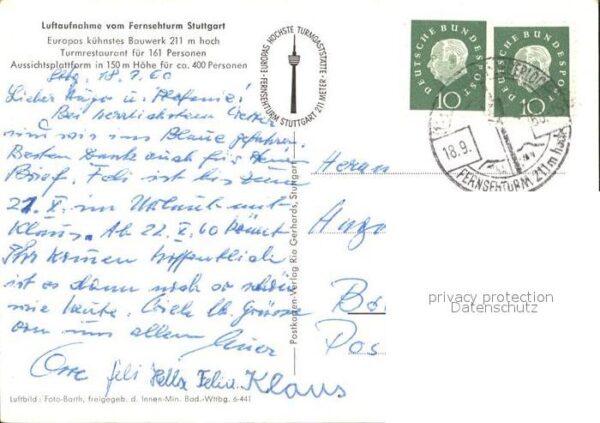 Luftaufnahme vom Fernsehturm Stuttgart
Europas kühnstes Bauwerk 211 m hoch
Turmrestaurant für 161 Personen
Aussichtsplattform in 150 m Höhe für ca. 400 Personen
EUROPAS HÖCHSTE TURMGASTSTÄTTE
FERNSEHTURM STUTTGART 211 METER
DEUTSCHE BUNDESPOST
10
DEUTSCHE BUNDESPOST
10
18.9.
FERNSEHTURM 211 m hoch
18.9.60
Lieber Hugo u.
Bei herrlichstem Wetter
sind wir ins Blaue gefahren.
Besten Dank auch für
Brief. Feli ist bis zum
21. X. im Urlaub mit
Klaus. Ab 22. X. 60 könnt
Ihr kommen hoffentlich
ist es dann noch so schön
wie heute. Viele lb. Grüsse
von uns allen Euer
Feli Klaus
Postkarten-Verlag Rio Gerhards, Stuttgart
Herrn
Hugo
Bo
Pos
privacy protection
Datenschutz
Luftbild: Foto-Barth, freigegeb. d. Innen-Min. Bad.-Wttbg. 6-441